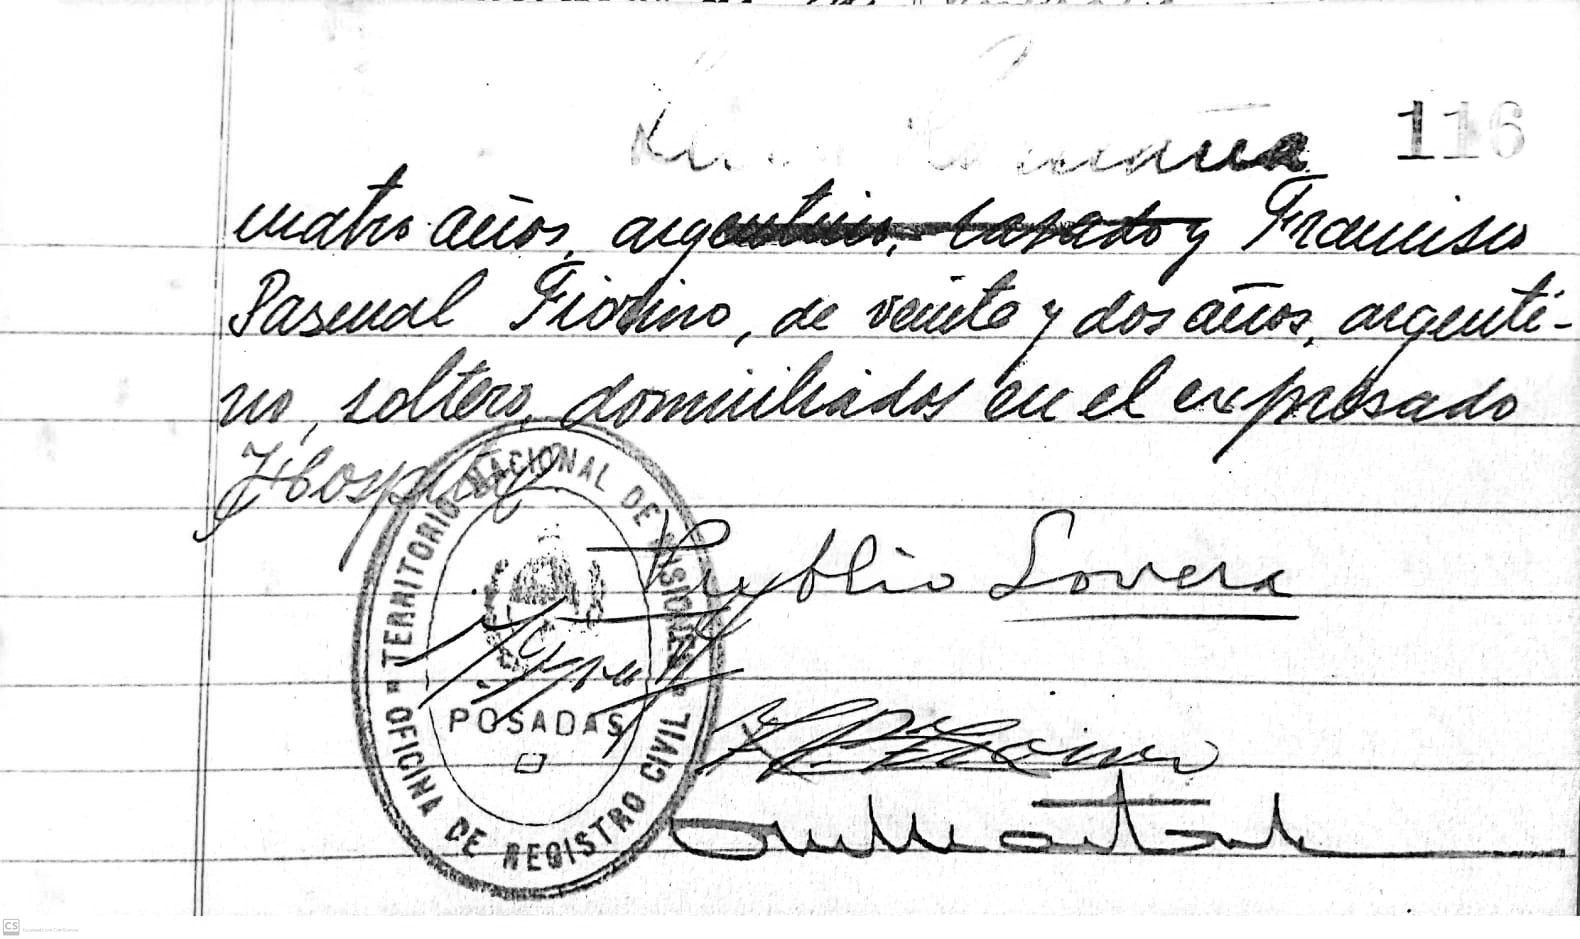 116
cuatro años, argentino, casado y Francisco
Pascual Fiorino, de veinte y dos años, argenti-
no, soltero, domiciliados en el expresado
Hospital
TERRITORIO NACIONAL DE MISIONES
Publio Lovera
POSADAS
OFICINA DE REGISTRO CIVIL
CS